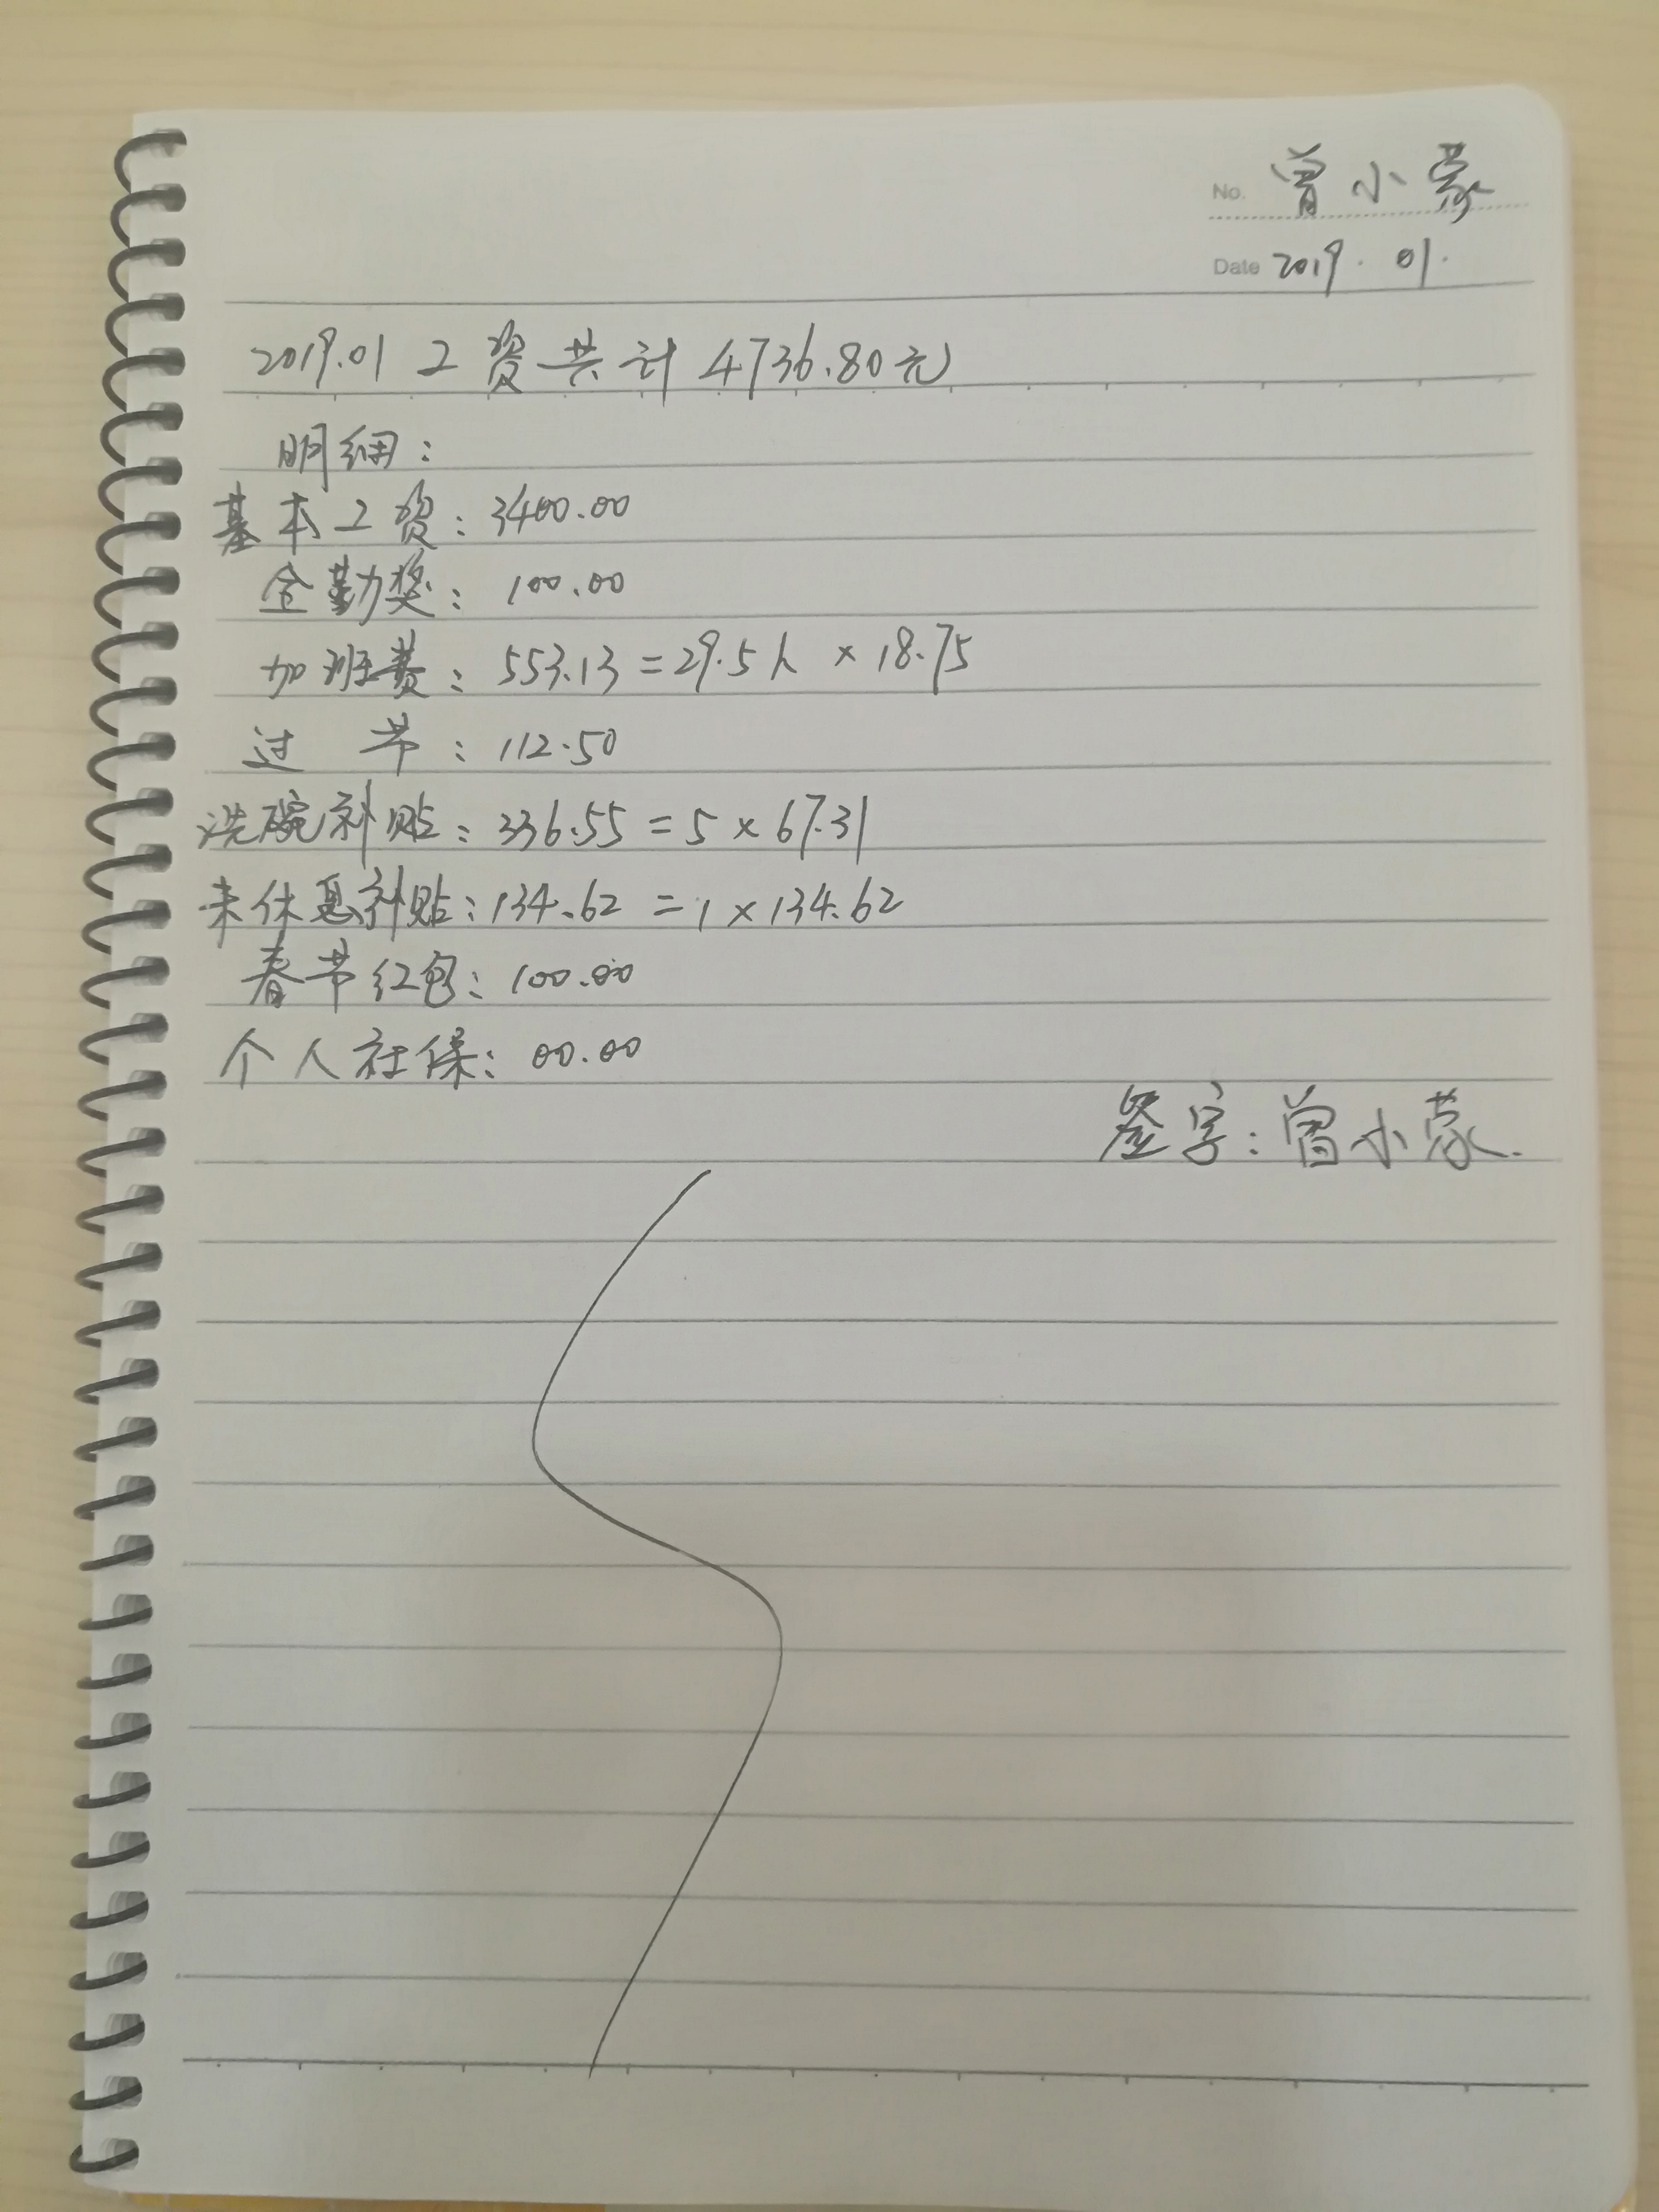 No. 曾小蒙
Date 2019.01.
2019.01 工资共计 4736.80元
明细：
基本工资：3400.00
全勤奖：100.00
加班费：553.13=29.5h×18.75
过节：112.50
洗碗补贴：336.55=5×67.31
未休息补贴：134.62=1×134.62
春节红包：100.00
个人社保：00.00
签字：曾小蒙.